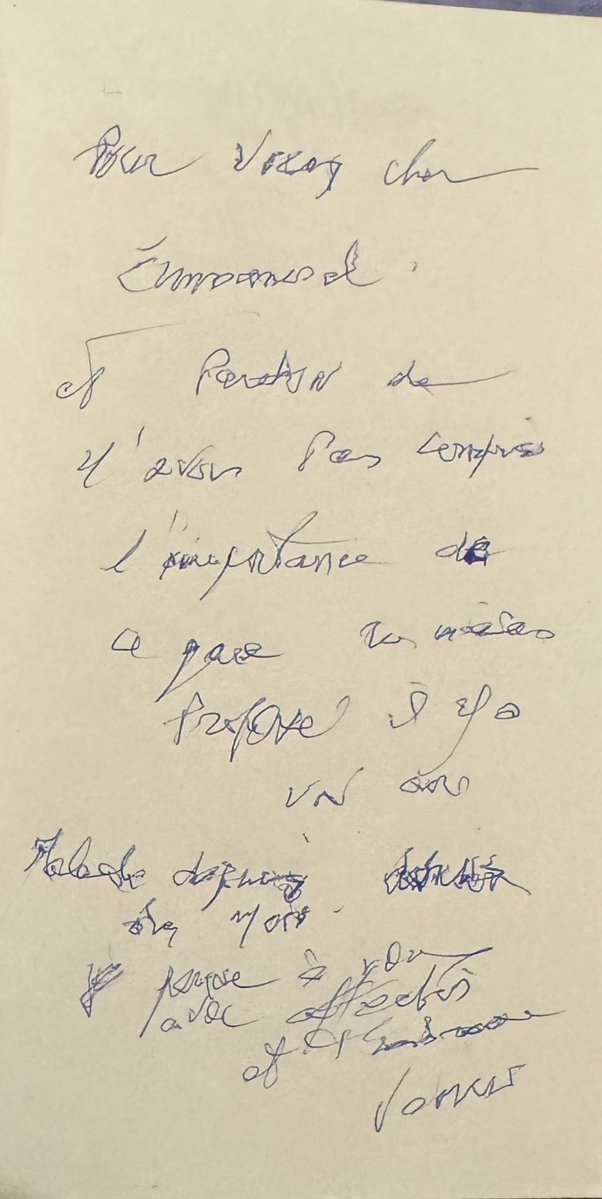 Pour vous cher
Emmanuel.
et Pardon de
n'avoir Pas compris
l'importance de
ce que tu m'avais
Proposé il y a
UN an
Malade depuis
six mois.
je pense à vous
avec affection
et